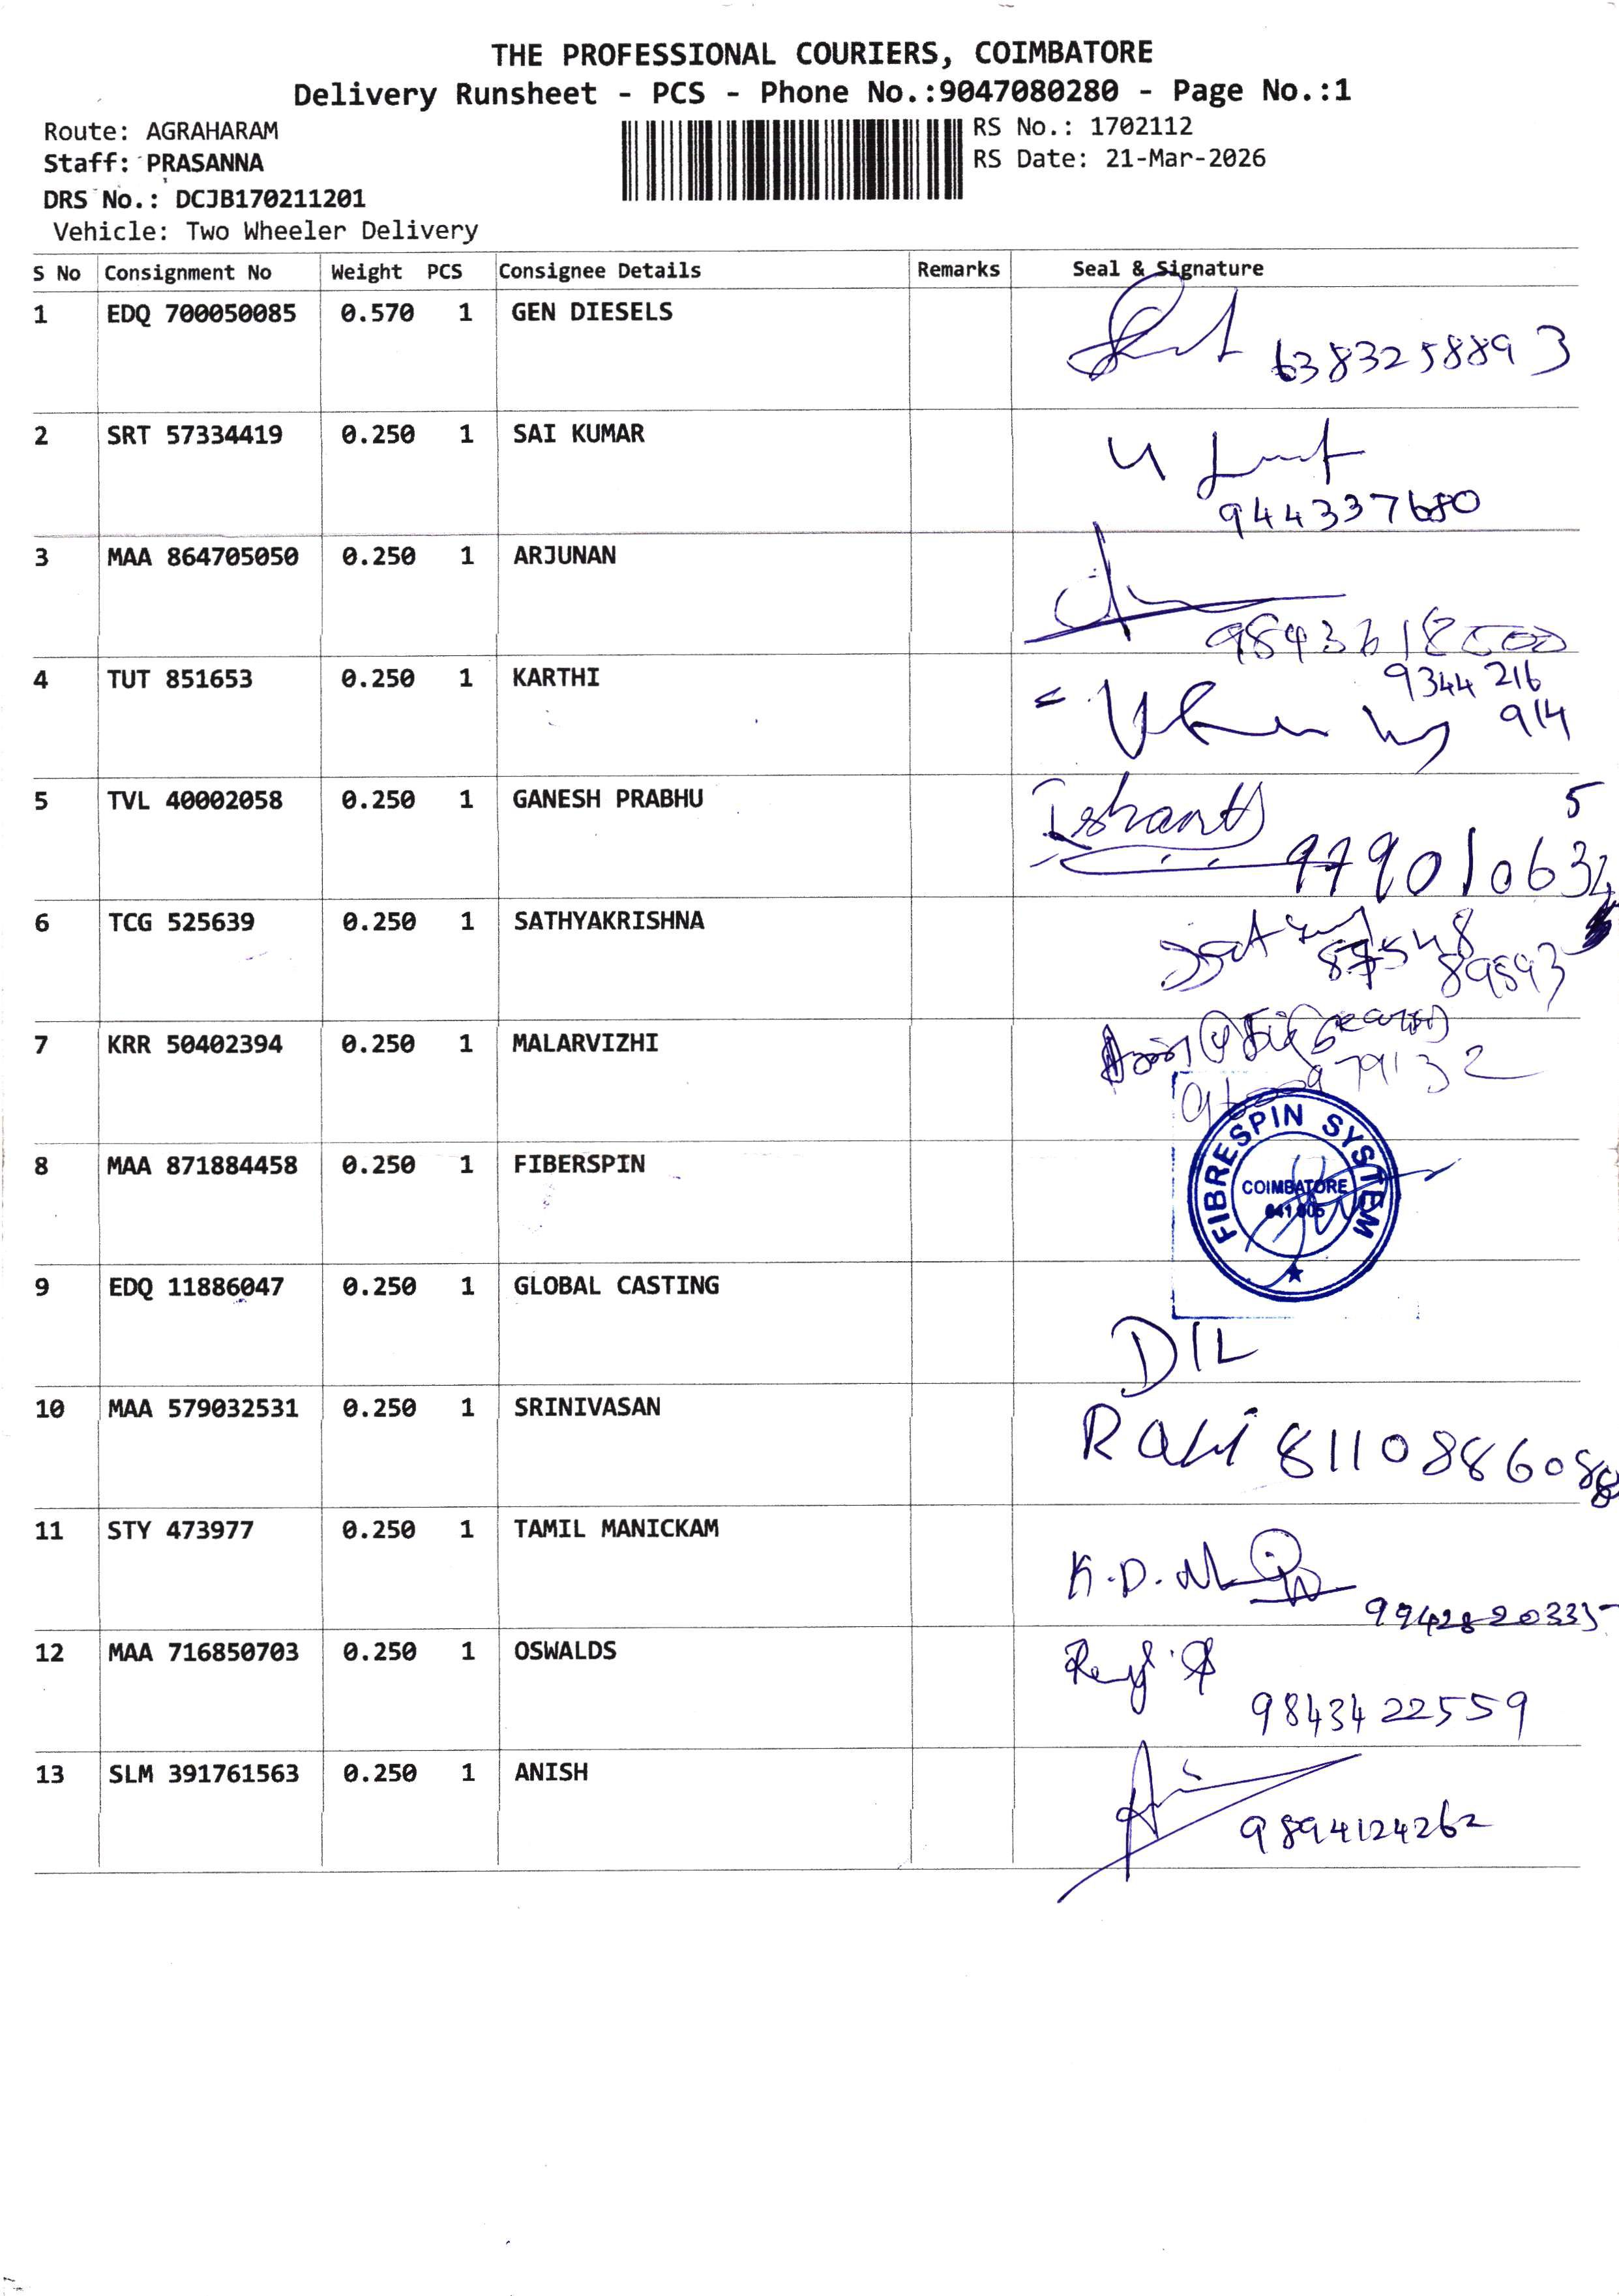 THE PROFESSIONAL COURIERS, COIMBATORE
Delivery Runsheet - PCS - Phone No.:9047080280 - Page No.:1
Route: AGRAHARAM
RS No.: 1702112
Staff: PRASANNA
RS Date: 21-Mar-2026
DRS No.: DCJB170211201
Vehicle: Two Wheeler Delivery
S No Consignment No Weight PCS Consignee Details Remarks Seal & Signature
1 EDQ 700050085 0.570 1 GEN DIESELS
6383258893
2 SRT 57334419 0.250 1 SAI KUMAR
3 MAA 864705050 0.250 1 ARJUNAN
4 TUT 851653 0.250 1 KARTHI
9344 216
914
5 TVL 40002058 0.250 1 GANESH PRABHU
5
6 TCG 525639 0.250 1 SATHYAKRISHNA
7 KRR 50402394 0.250 1 MALARVIZHI
8 MAA 871884458 0.250 1 FIBERSPIN
FIBRESPIN SYSTEM
COIMBATORE
9 EDQ 11886047 0.250 1 GLOBAL CASTING
10 MAA 579032531 0.250 1 SRINIVASAN
11 STY 473977 0.250 1 TAMIL MANICKAM
K.D.
12 MAA 716850703 0.250 1 OSWALDS
9843422559
13 SLM 391761563 0.250 1 ANISH
9894124262